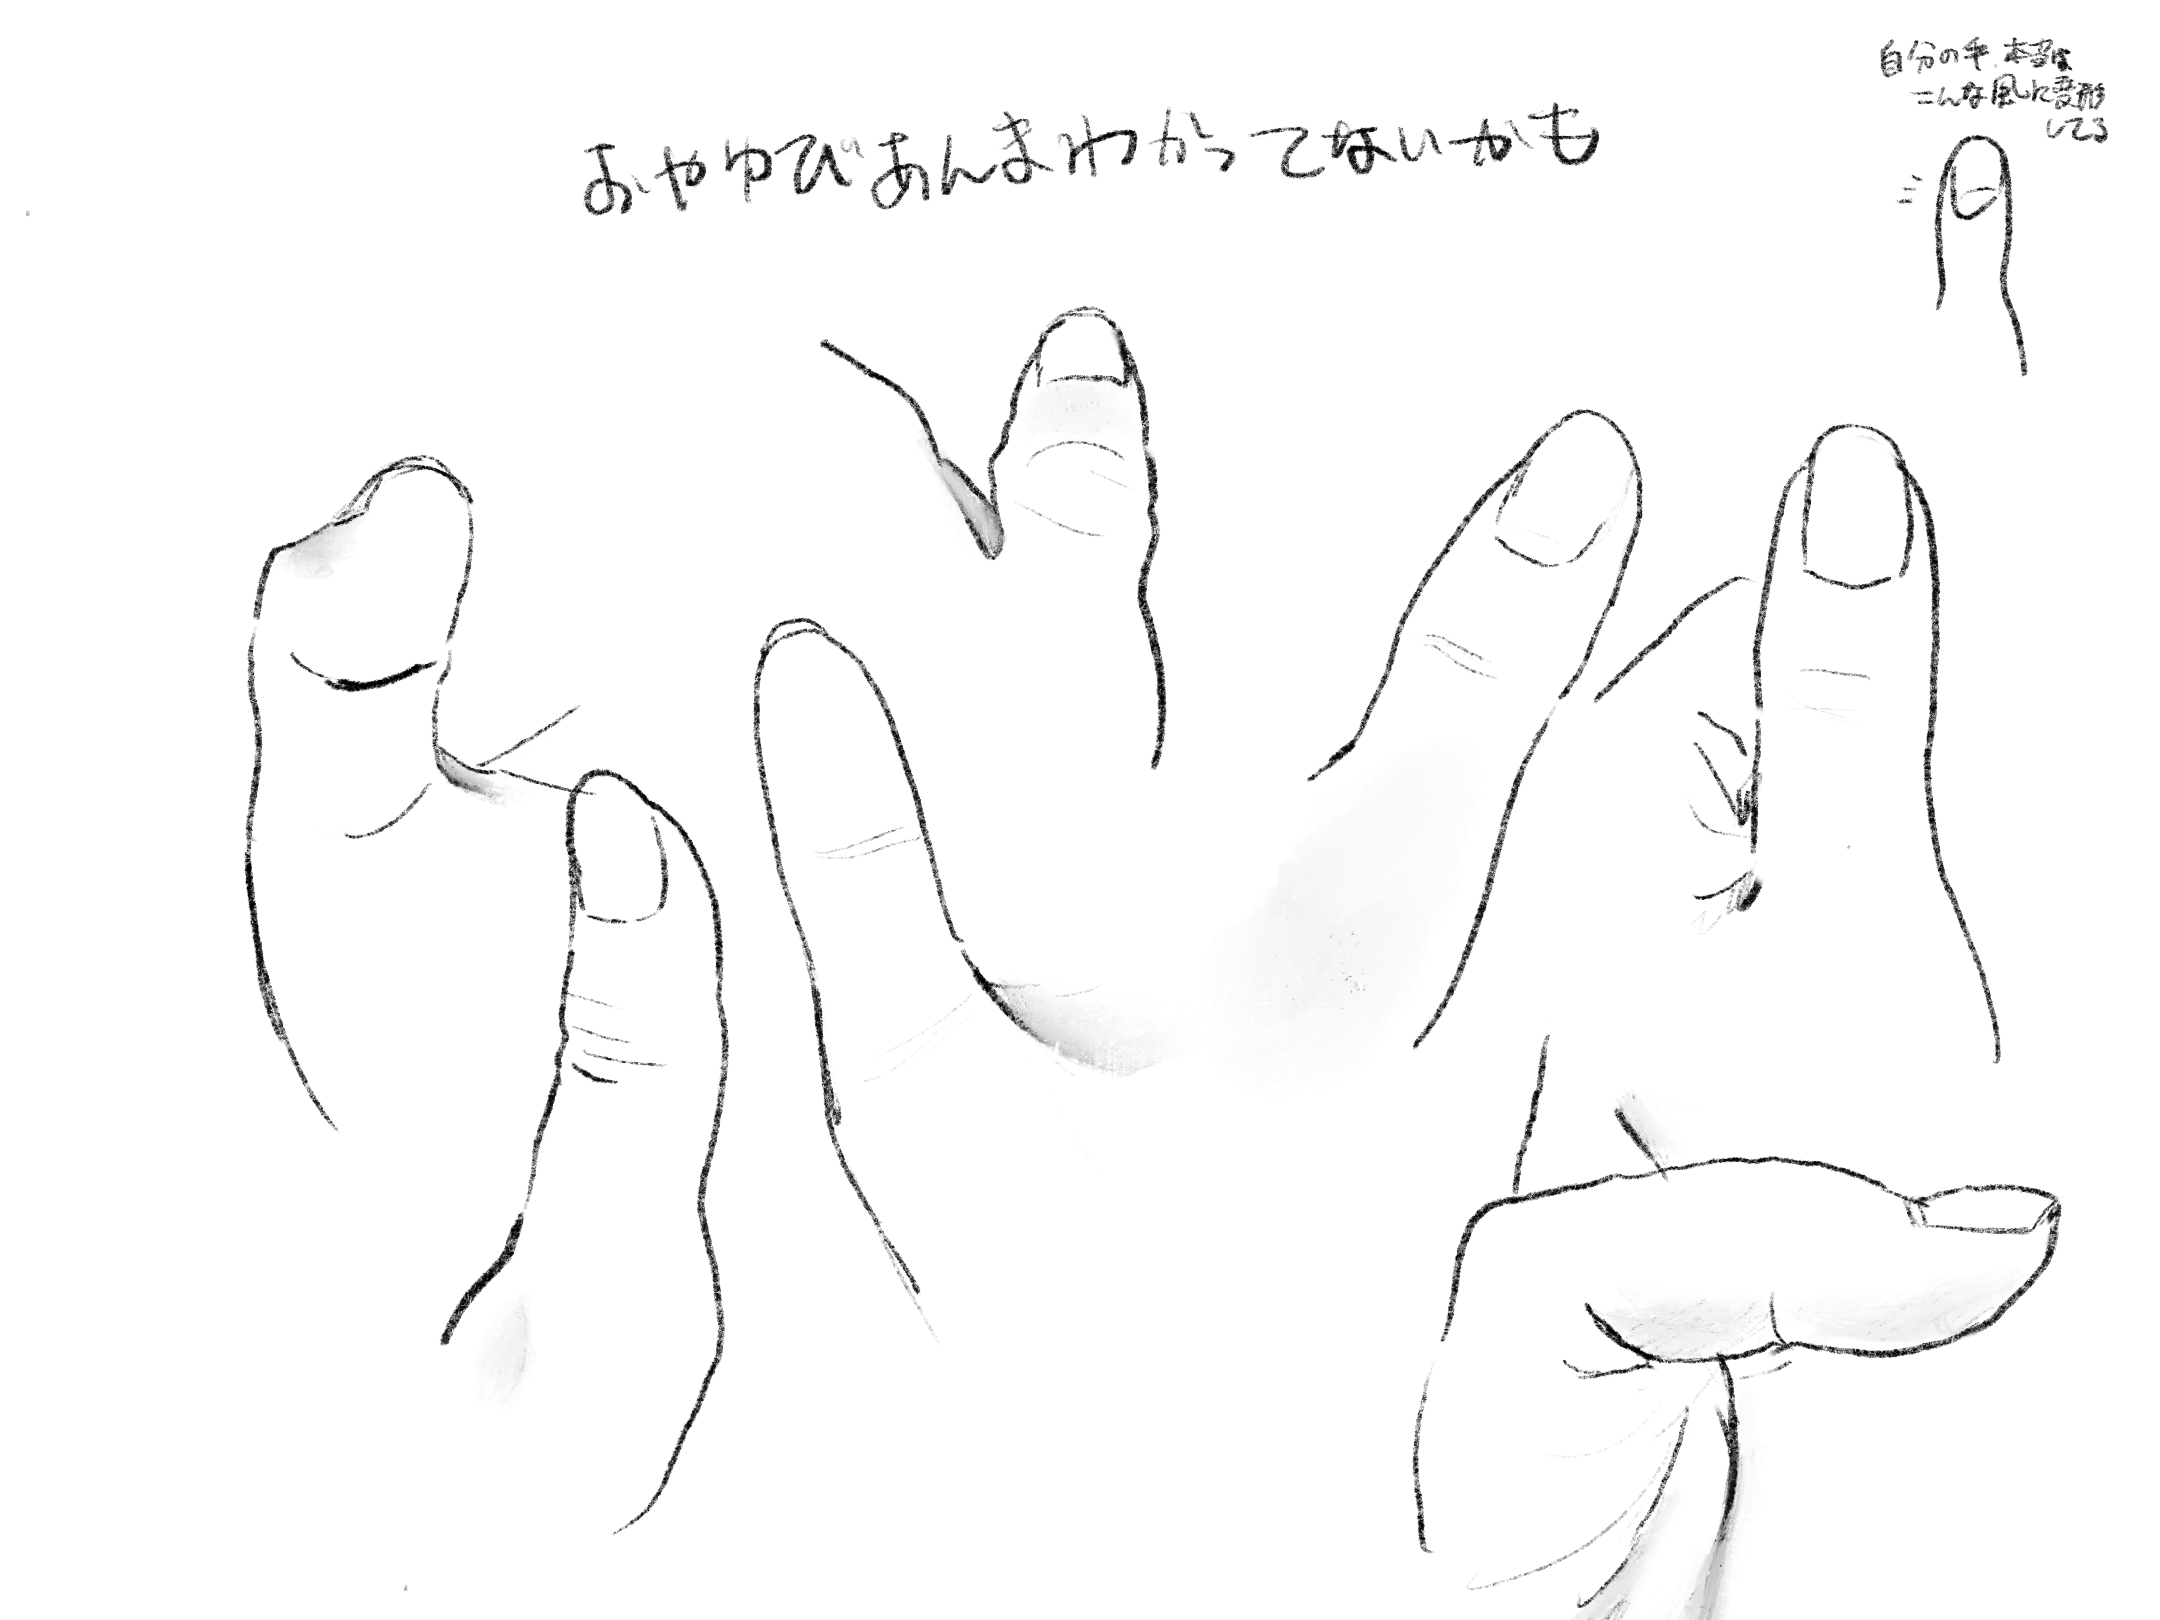 おやゆびあんまわかってないかも
自分の手、本当は
こんな風に変形
してる